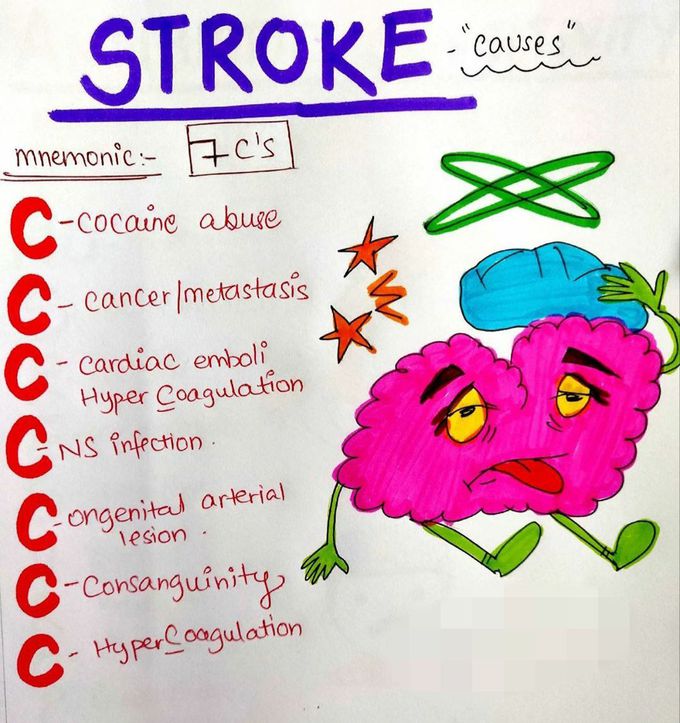 STROKE - "causes"
mnemonic:- 7 C's
C - cocaine abuse
C - cancer/metastasis
C - cardiac emboli
Hyper Coagulation
C - NS infection.
C - ongenital arterial
lesion.
C - Consanguinity
C - HyperCoagulation